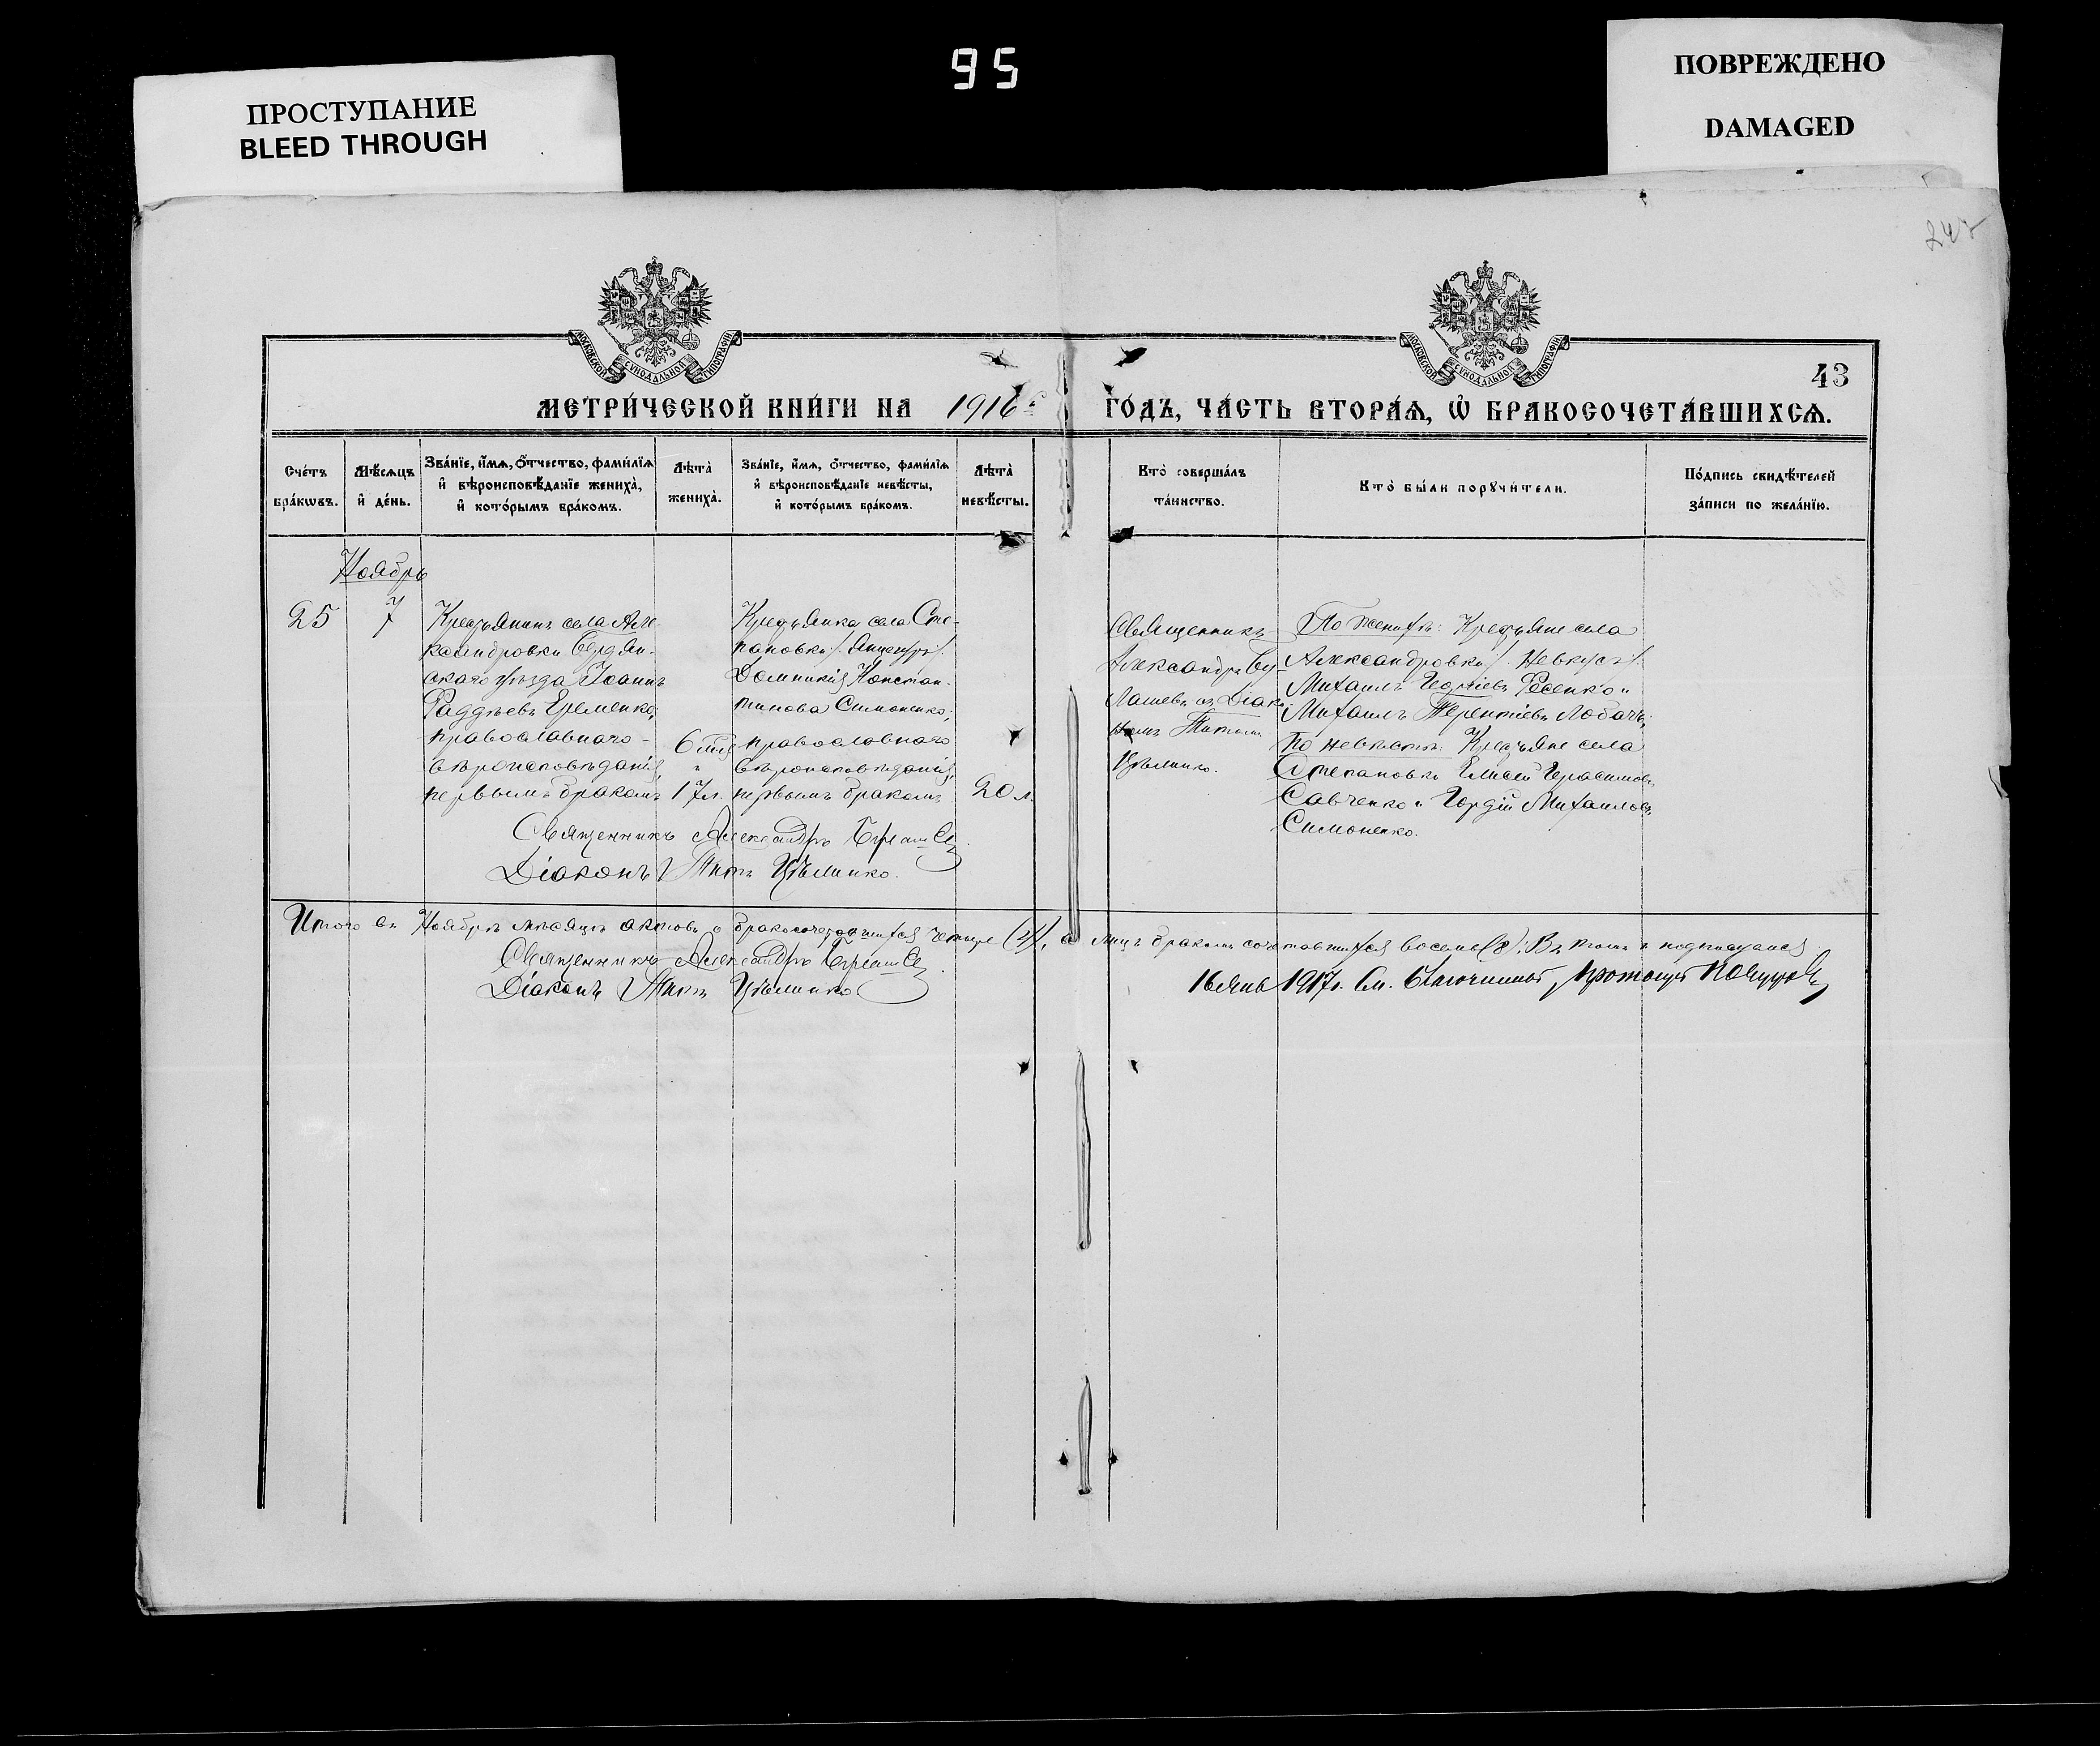 95
ПРОСТУПАНИЕ
BLEED THROUGH
ПОВРЕЖДЕНО
DAMAGED
МОСКОВСКОЙ СѴНОДАЛЬНОЙ ТИПОГРАФІИ
МОСКОВСКОЙ СѴНОДАЛЬНОЙ ТИПОГРАФІИ
43
МЕТРИ́ЧЕСКОЙ КНИ́ГИ НА 1916 ГО́ДЪ, ЧА́СТЬ ВТОРА́Ѧ, Ѡ҆ БРАКОСОЧЕТА́ВШИХСѦ.
Сче́тъ
бра́кѡвъ.
Мѣ́сѧцъ
и҆ де́нь.
Зва́нїе, и҆́мѧ, о҆́тчество, фами́лїѧ
и҆ вѣроисповѣ́данїе жениха̀,
и҆ кото́рымъ бра́комъ.
Лѣта̀
жениха̀.
Зва́нїе, и҆́мѧ, о҆́тчество, фами́лїѧ
и҆ вѣроисповѣ́данїе невѣ́сты,
и҆ кото́рымъ бра́комъ.
Лѣта̀
невѣ́сты.
Кто̀ соверша́лъ
та́инство.
Кто̀ бы́ли порꙋчи́тели.
По́дпись свидѣ́телей
за́писи по жела́нїю.
Ноябрь
25
7
Крестьянинъ села Але-
ксандровки Бердян-
скаго уѣзда Іоаннъ
Фаддѣевъ Еременко,
православнаго
вѣроисповѣданія,
первымъ бракомъ
17 л.
Крестьянка села Сте-
пановки
Домникія Констан-
тинова Симоненко,
православнаго
вѣроисповѣданія,
первымъ бракомъ
20 л.
Священникъ
Александръ
съ Діако-
номъ Титомъ
Цѣлинко.
По женихѣ: Крестьяне села
Александровки
Михаилъ и
Михаилъ Терентіевъ Лобачъ;
по невѣстѣ: Крестьяне села
Степановки Елисей Герасимовъ
Савченко и Гордій Михаиловъ
Симоненко.
Священникъ Александръ
Діаконъ Титъ Цѣлинко.
Итого въ Ноябрѣ мѣсяцѣ актовъ о бракосочетавшихся четыре (4), а лицъ бракомъ сочетавшихся восемь (8). Въ томъ и подписуемся
Священникъ Александръ
Діаконъ Титъ Цѣлинко
16 янв 1917 г. См. Благочинный, Протоіерей